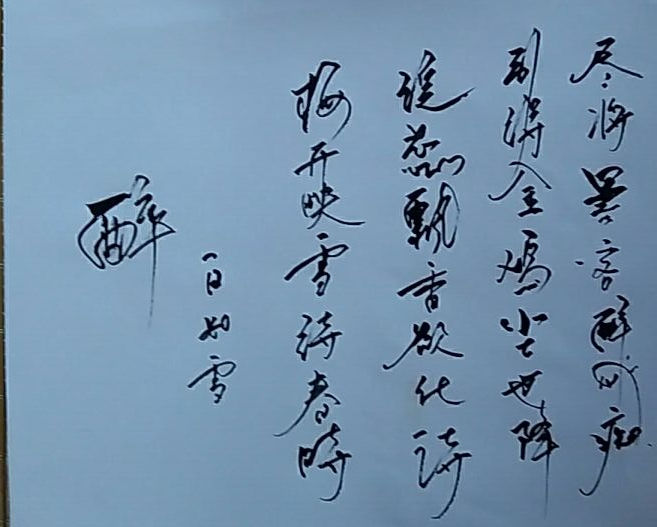 醉
一日如雪
梅开映雪待春時
绽蕊飘香欲化诗
到得金鸡尘世降
尽将墨客醉成痴